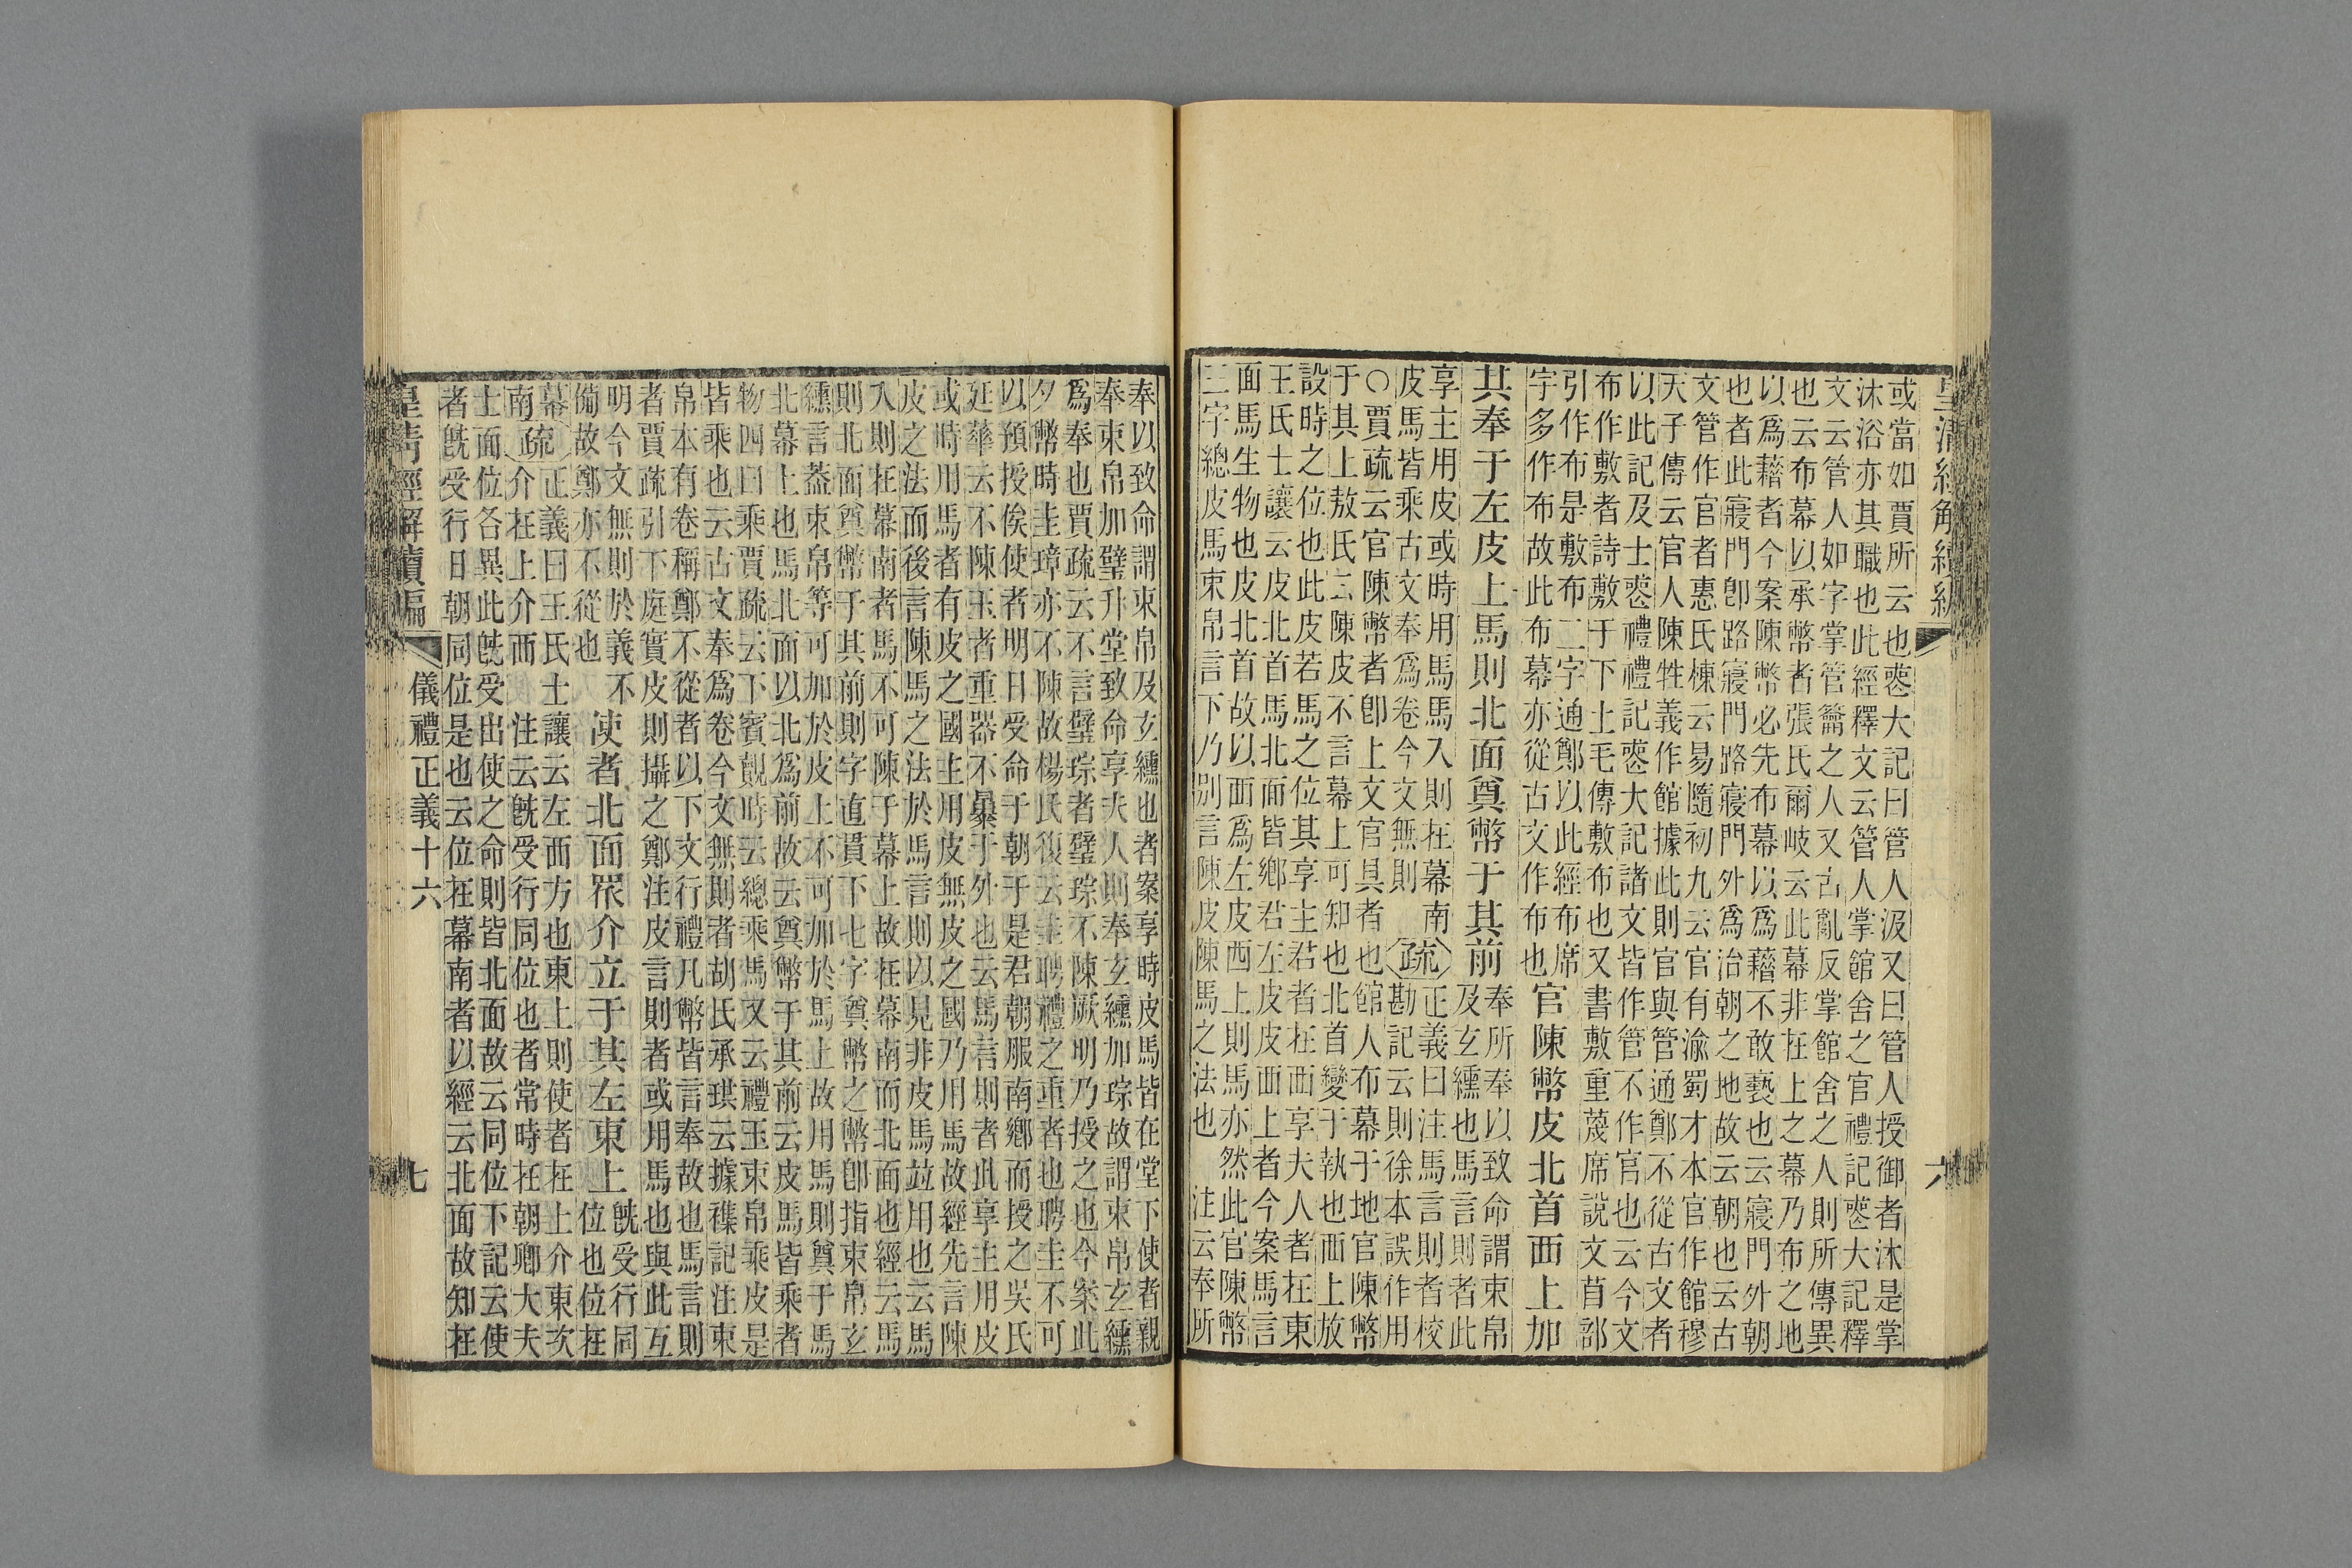 皇清經解續編
六
或當如賈所云也喪大記曰管人汲又曰管人授御者沐是掌
沐浴亦其職也此經釋文云管人掌館舍之官禮記喪大記釋
文云管人如字掌管籥之人又古亂反掌館舍之人則所傳異
也云布幕以承幣者張氏爾岐云此幕非在上之幕乃布之地
以爲藉者今案陳幣必先布幕以爲藉不敢褻也云寢門外朝
也者此寢門卽路寢門路寢門外爲治朝之地故云朝也云古
文管作官者惠氏棟云易隨初九云官有渝蜀才本官作館穆
天子傳云官人陳牲義作館據此則官與管通鄭不從古文者
以此記及士喪禮禮記喪大記諸文皆作管不作官也云今文
布作敷者詩敷于下土毛傳敷布也又書敷重蔑席說文首部
引作布是敷布二字通鄭以此經布席
字多作布故此布幕亦從古文作布也
官陳幣皮北首西上加
其奉于左皮上馬則北面奠幣于其前
奉所奉以致命謂束帛
及玄纁也馬言則者此
享主用皮或時用馬馬入則在幕南
皮馬皆乘古文奉爲卷今文無則
疏
正義曰注馬言則者校
勘記云則徐本誤作用
○賈疏云官陳幣者卽上文官具者也館人布幕于地官陳幣
于其上敖氏云陳皮不言幕上可知也北首變于執也西上放
設時之位也此皮若馬之位其享主君者在西享夫人者在東
王氏士讓云皮北首馬北面皆鄉君左皮皮西上者今案馬言
面馬生物也皮北首故以西爲左皮西上則馬亦然此官陳幣
三字總皮馬束帛言下乃別言陳皮陳馬之法也　注云奉所
奉以致命謂束帛及玄纁也者案享時皮馬皆在堂下使者親
奉束帛加璧升堂致命享夫人則奉玄纁加琮故謂束帛玄纁
爲奉也賈疏云不言璧琮者璧琮不陳厥明乃授之也今案此
夕幣時圭璋亦不陳故楊氏復云圭聘禮之重者也聘主不可
以預授俟使者明日受命于朝于是君朝服南鄉而授之吳氏
廷華云不陳玉者重器不暴于外也云馬言則者此享主用皮
或時用馬者有皮之國主用皮無皮之國乃用馬故經先言陳
皮之法而後言陳馬之法於馬言則以見非皮馬竝用也云馬
入則在幕南者馬不可陳于幕上故在幕南而北面也經云馬
則北面奠幣于其前則字直貫下七字奠幣之幣卽指束帛玄
纁言蓋束帛等可加於皮上不可加於馬上故用馬則奠于馬
北幕上也馬北面以北爲前故云奠幣于其前云皮馬皆乘者
物四曰乘賈疏云下賓覿時云總乘馬又云禮玉束帛乘皮是
皆乘也云古文奉爲卷今文無則者胡氏承珙云據襍記注束
帛本有卷稱鄭不從者以下文行禮凡幣皆言奉故也馬言則
者賈疏引下庭實皮則攝之鄭注皮言則者或用馬也與此互
明今文無則於義不
備故鄭亦不從也
使者北面眾介立于其左東上
旣受行同
位也位在
幕
南
疏
正義曰王氏士讓云左西方也東上則使者在上介東次
介在上介西　注云旣受行同位也者常時在朝卿大夫
士面位各異此旣受出使之命則皆北面故云同位下記云使
者旣受行日朝同位是也云位在幕南者以經云北面故知在
皇清經解續編
儀禮正義十六
七